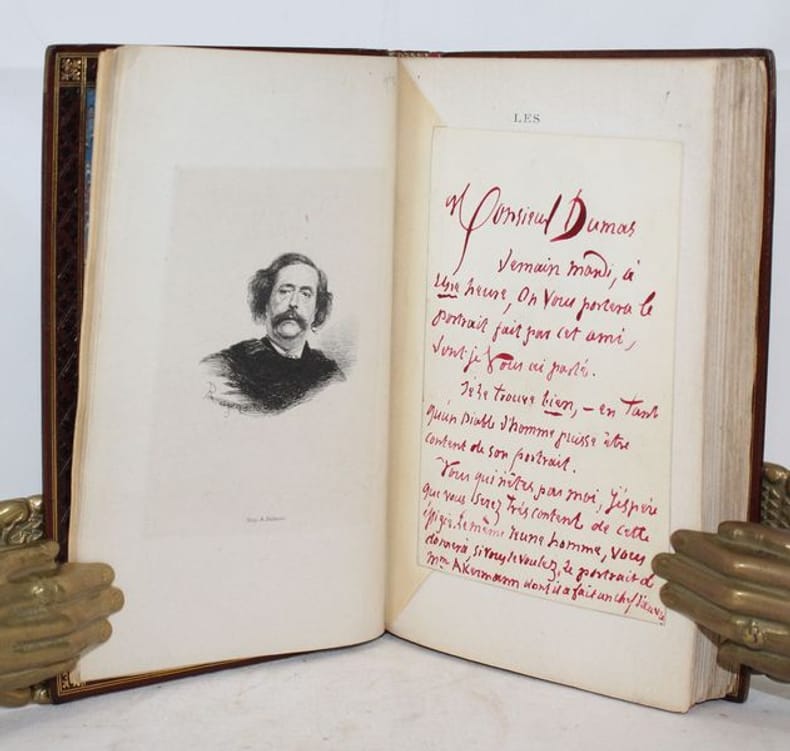 LES
Monsieur Dumas
Demain mardi, à
Une heure, On Vous portera le
portrait fait par cet ami,
dont je Vous ai parlé.
Je le trouve bien, – en Tant
qu'un Diable d'homme puisse être
content de son portrait.
Vous qui n'êtes pas moi, j'espère
que vous serez très content de cette
Le même jeune homme, Vous
donnera, si vous le voulez, le portrait de
Mme AKermann dont il a fait un chef d'œuvre